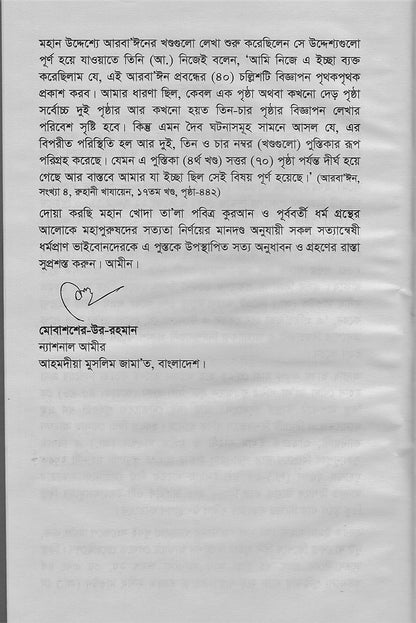 মহান উদ্দেশ্যে আরবা'ঈনের খণ্ডগুলো লেখা শুরু করেছিলেন সে উদ্দেশ্যগুলো
পূর্ণ হয়ে যাওয়াতে তিনি (আ.) নিজেই বলেন, 'আমি নিজে এ ইচ্ছা ব্যক্ত
করেছিলাম যে, এই আরবা'ঈন প্রবন্ধের (৪০) চল্লিশটি বিজ্ঞাপন পৃথকপৃথক
প্রকাশ করব। আমার ধারণা ছিল, কেবল এক পৃষ্ঠা অথবা কখনো দেড় পৃষ্ঠা
সর্বোচ্চ দুই পৃষ্ঠার আর কখনো হয়ত তিন-চার পৃষ্ঠার বিজ্ঞাপন লেখার
পরিবেশ সৃষ্টি হবে। কিন্তু এমন দৈব ঘটনাসমূহ সামনে আসল যে, এর
বিপরীত পরিস্থিতি হল আর দুই, তিন ও চার নম্বর (খণ্ডগুলো) পুস্তিকার রূপ
পরিগ্রহ করেছে। যেমন এ পুস্তিকা (৪র্থ খণ্ড) সত্তর (৭০) পৃষ্ঠা পর্যন্ত দীর্ঘ হয়ে
গেছে আর বাস্তবে আমার যা ইচ্ছা ছিল সেই বিষয় পূর্ণ হয়েছে।' (আরবা'ঈন,
সংখ্যা ৪, রুহানী খাযায়েন, ১৭তম খণ্ড, পৃষ্ঠা-৪৪২)
দোয়া করছি মহান খোদা তা'লা পবিত্র কুরআন ও পূর্ববর্তী ধর্ম গ্রন্থের
আলোকে মহাপুরুষদের সত্যতা নির্ণয়ের মানদণ্ড অনুযায়ী সকল সত্যান্বেষী
ধর্মপ্রাণ ভাইবোনদেরকে এ পুস্তকে উপস্থাপিত সত্য অনুধাবন ও গ্রহণের রাস্তা
সুপ্রশস্ত করুন। আমীন।
মোবাশশের-উর-রহমান
ন্যাশনাল আমীর
আহমদীয়া মুসলিম জামা'ত, বাংলাদেশ।